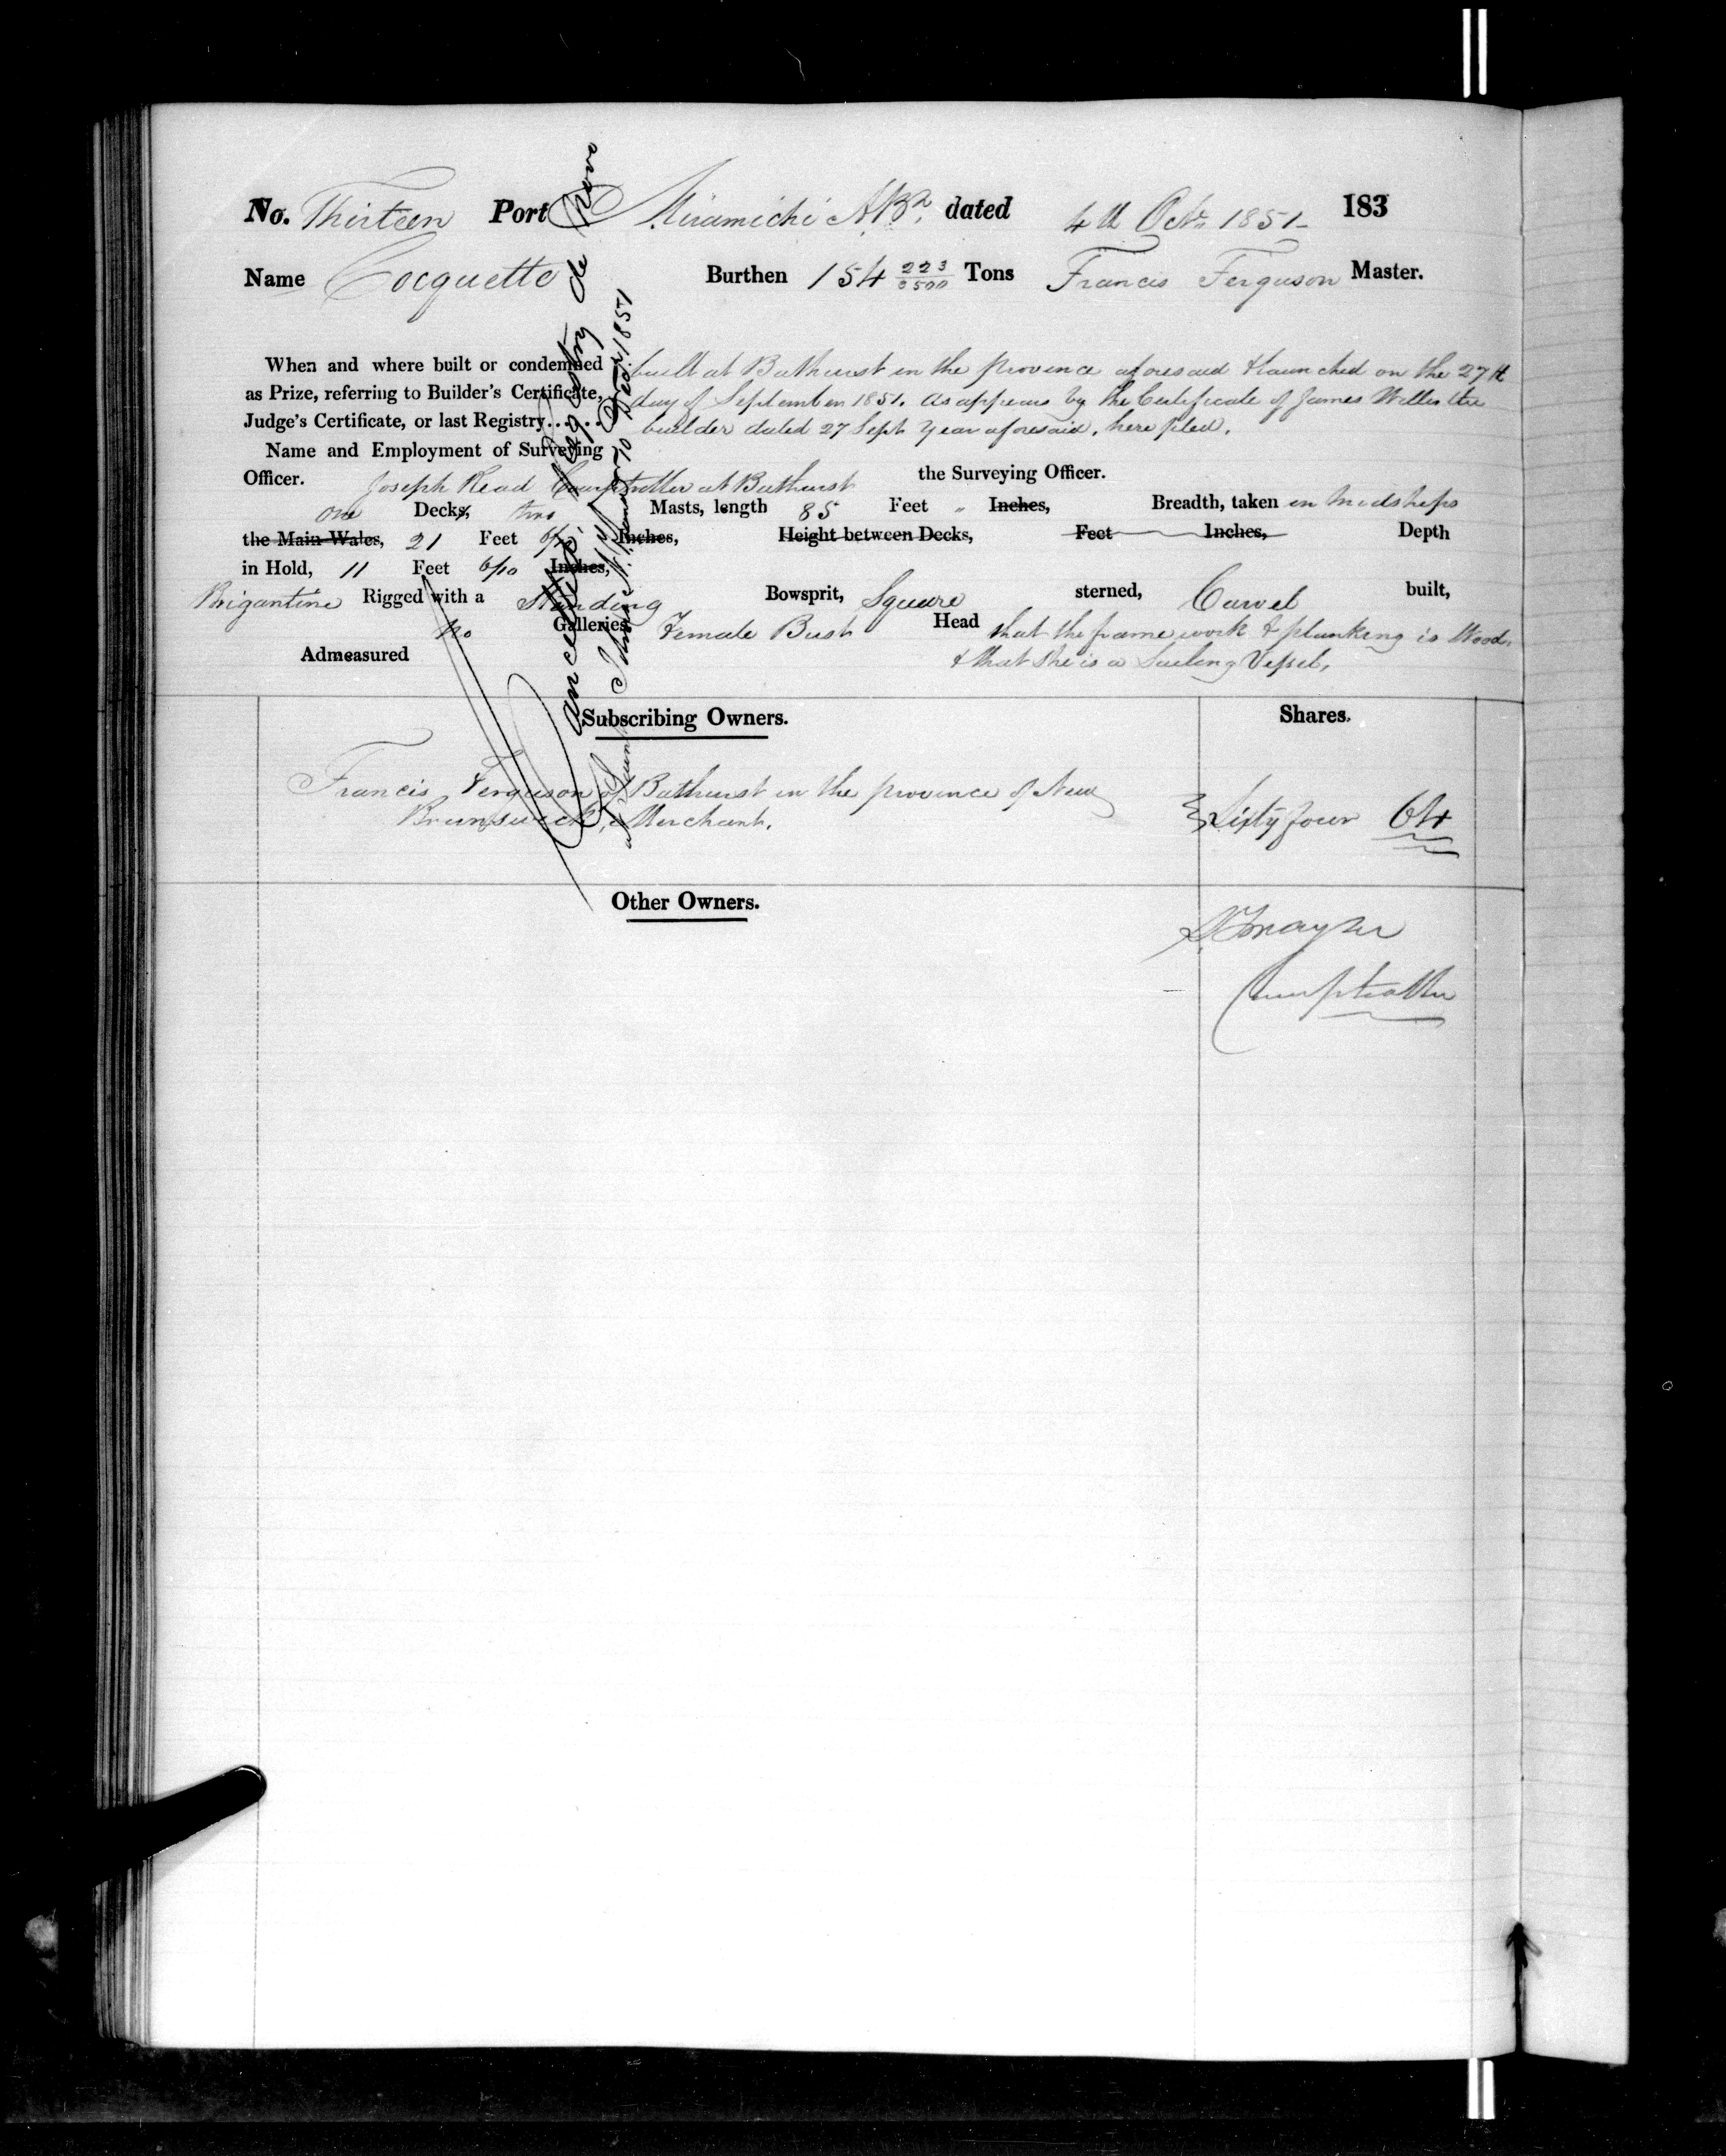 No. Thirteen Port Miramichi N.Bk. dated 4th Octr. 1851 183
Name Cocquette Burthen 154 223/3500 Tons Francis Ferguson Master.
When and where built or condemned built at Bathurst in the province aforesaid & launched on the 27th
as Prize, referring to Builder's Certificate, day of September 1851. as appears by the Certificate of James Willis the
Judge's Certificate, or last Registry..... builder dated 27 Sept Year aforesaid, here filed.
Name and Employment of Surveying
Officer. Joseph Read Comptroller at Bathurst the Surveying Officer.
One Decks, two Masts, length 85 Feet " Inches, Breadth, taken in Midships
the Main Wales, 21 Feet Inches, Height between Decks, Feet Inches, Depth
in Hold, 11 Feet 6/10 Inches,
Brigantine Rigged with a Standing Bowsprit, Square sterned, Carvel built,
No Galleries, Female Bust Head that the frame work & planking is Wood,
Admeasured & that she is a Sailing Vessel.
Cancelled Registry de novo
at Saint John's N.
70 Decr. 1851
Subscribing Owners. Shares.
Francis Ferguson of Bathurst in the province of New
Brunswick, Merchant. Sixty four 64
Other Owners.
Comptroller